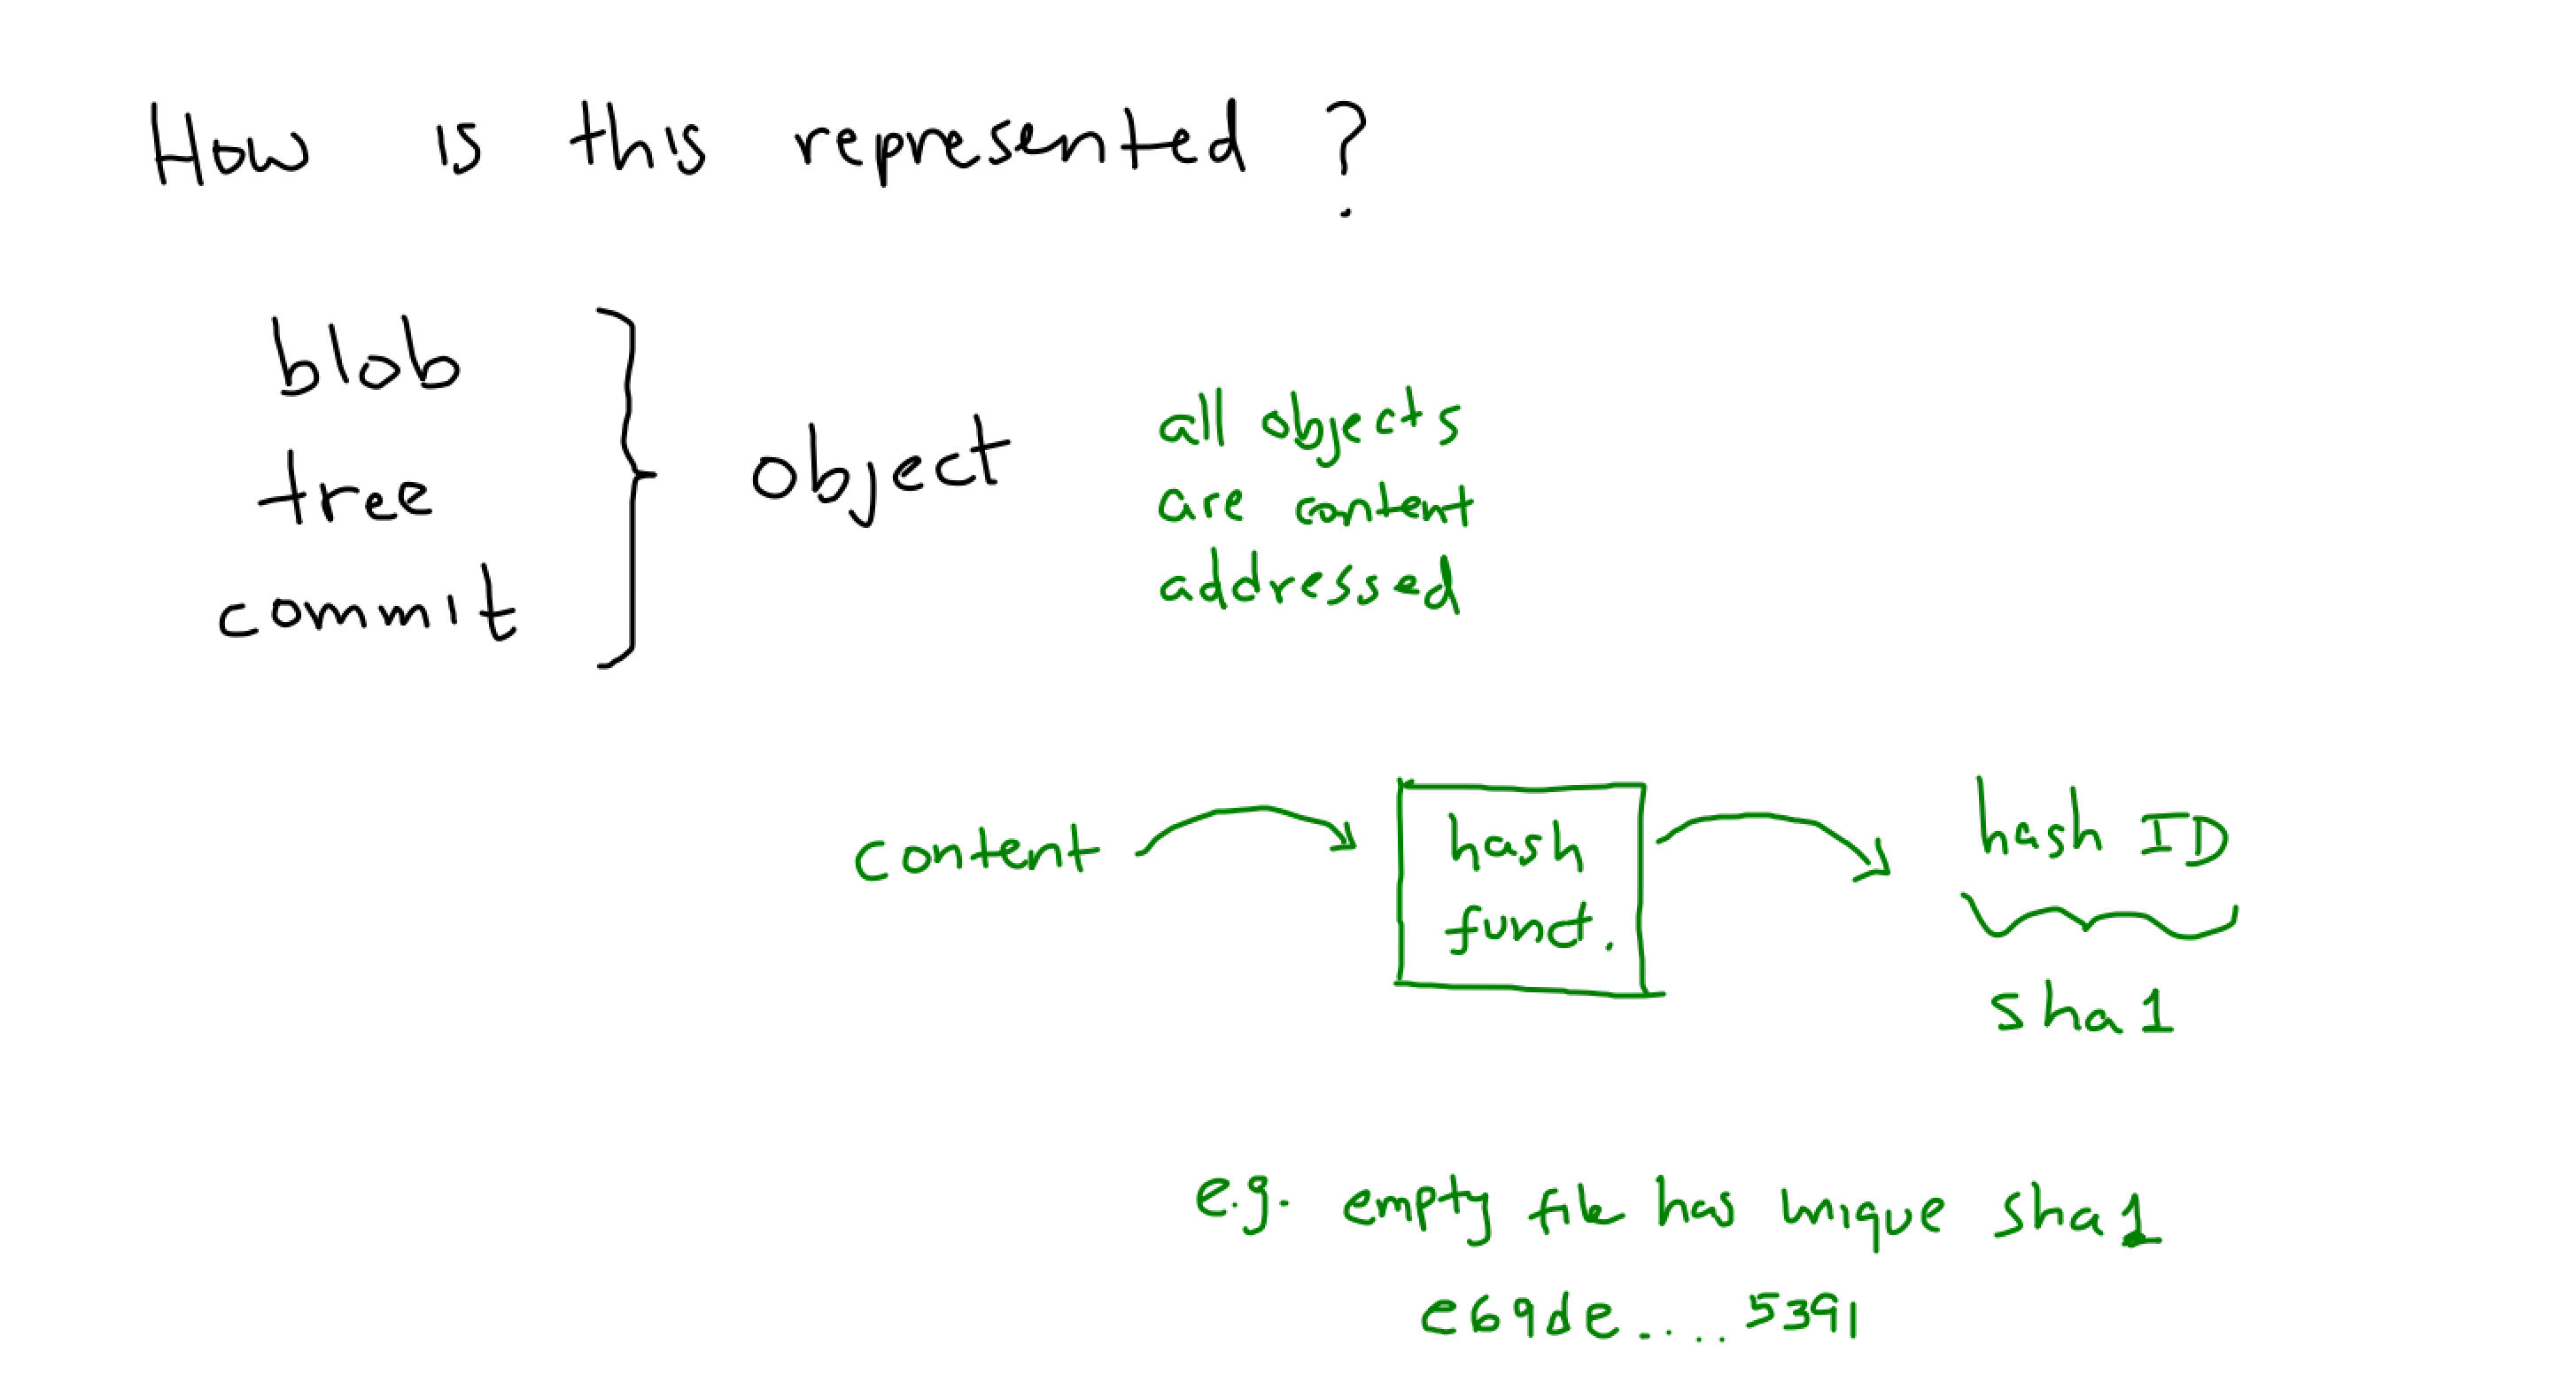 How is this represented ?
blob
tree
commit
object
all objects
are content
addressed
content
hash
funct.
hash ID
sha1
e.g. empty file has unique sha1
e69de.....5391